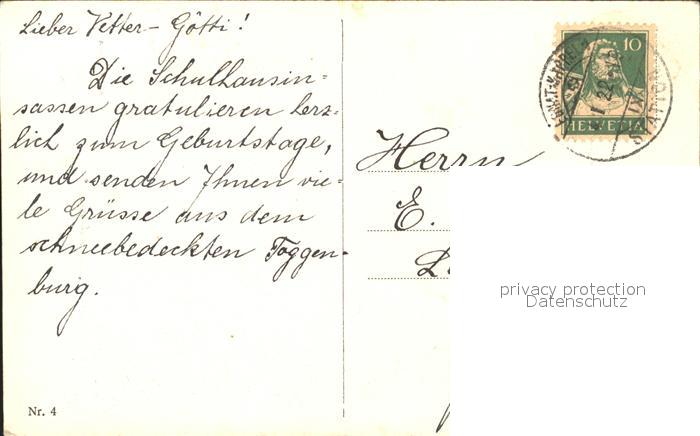 Lieber Vetter-Götti!
Die Schulhausin=
sassen gratulieren herz=
lich zum Geburtstage,
und senden Ihnen vie=
le Grüsse aus dem
schneebedeckten Toggen-
burg.
Nr. 4
10
HELVETIA
Herrn
E.
privacy protection
Datenschutz